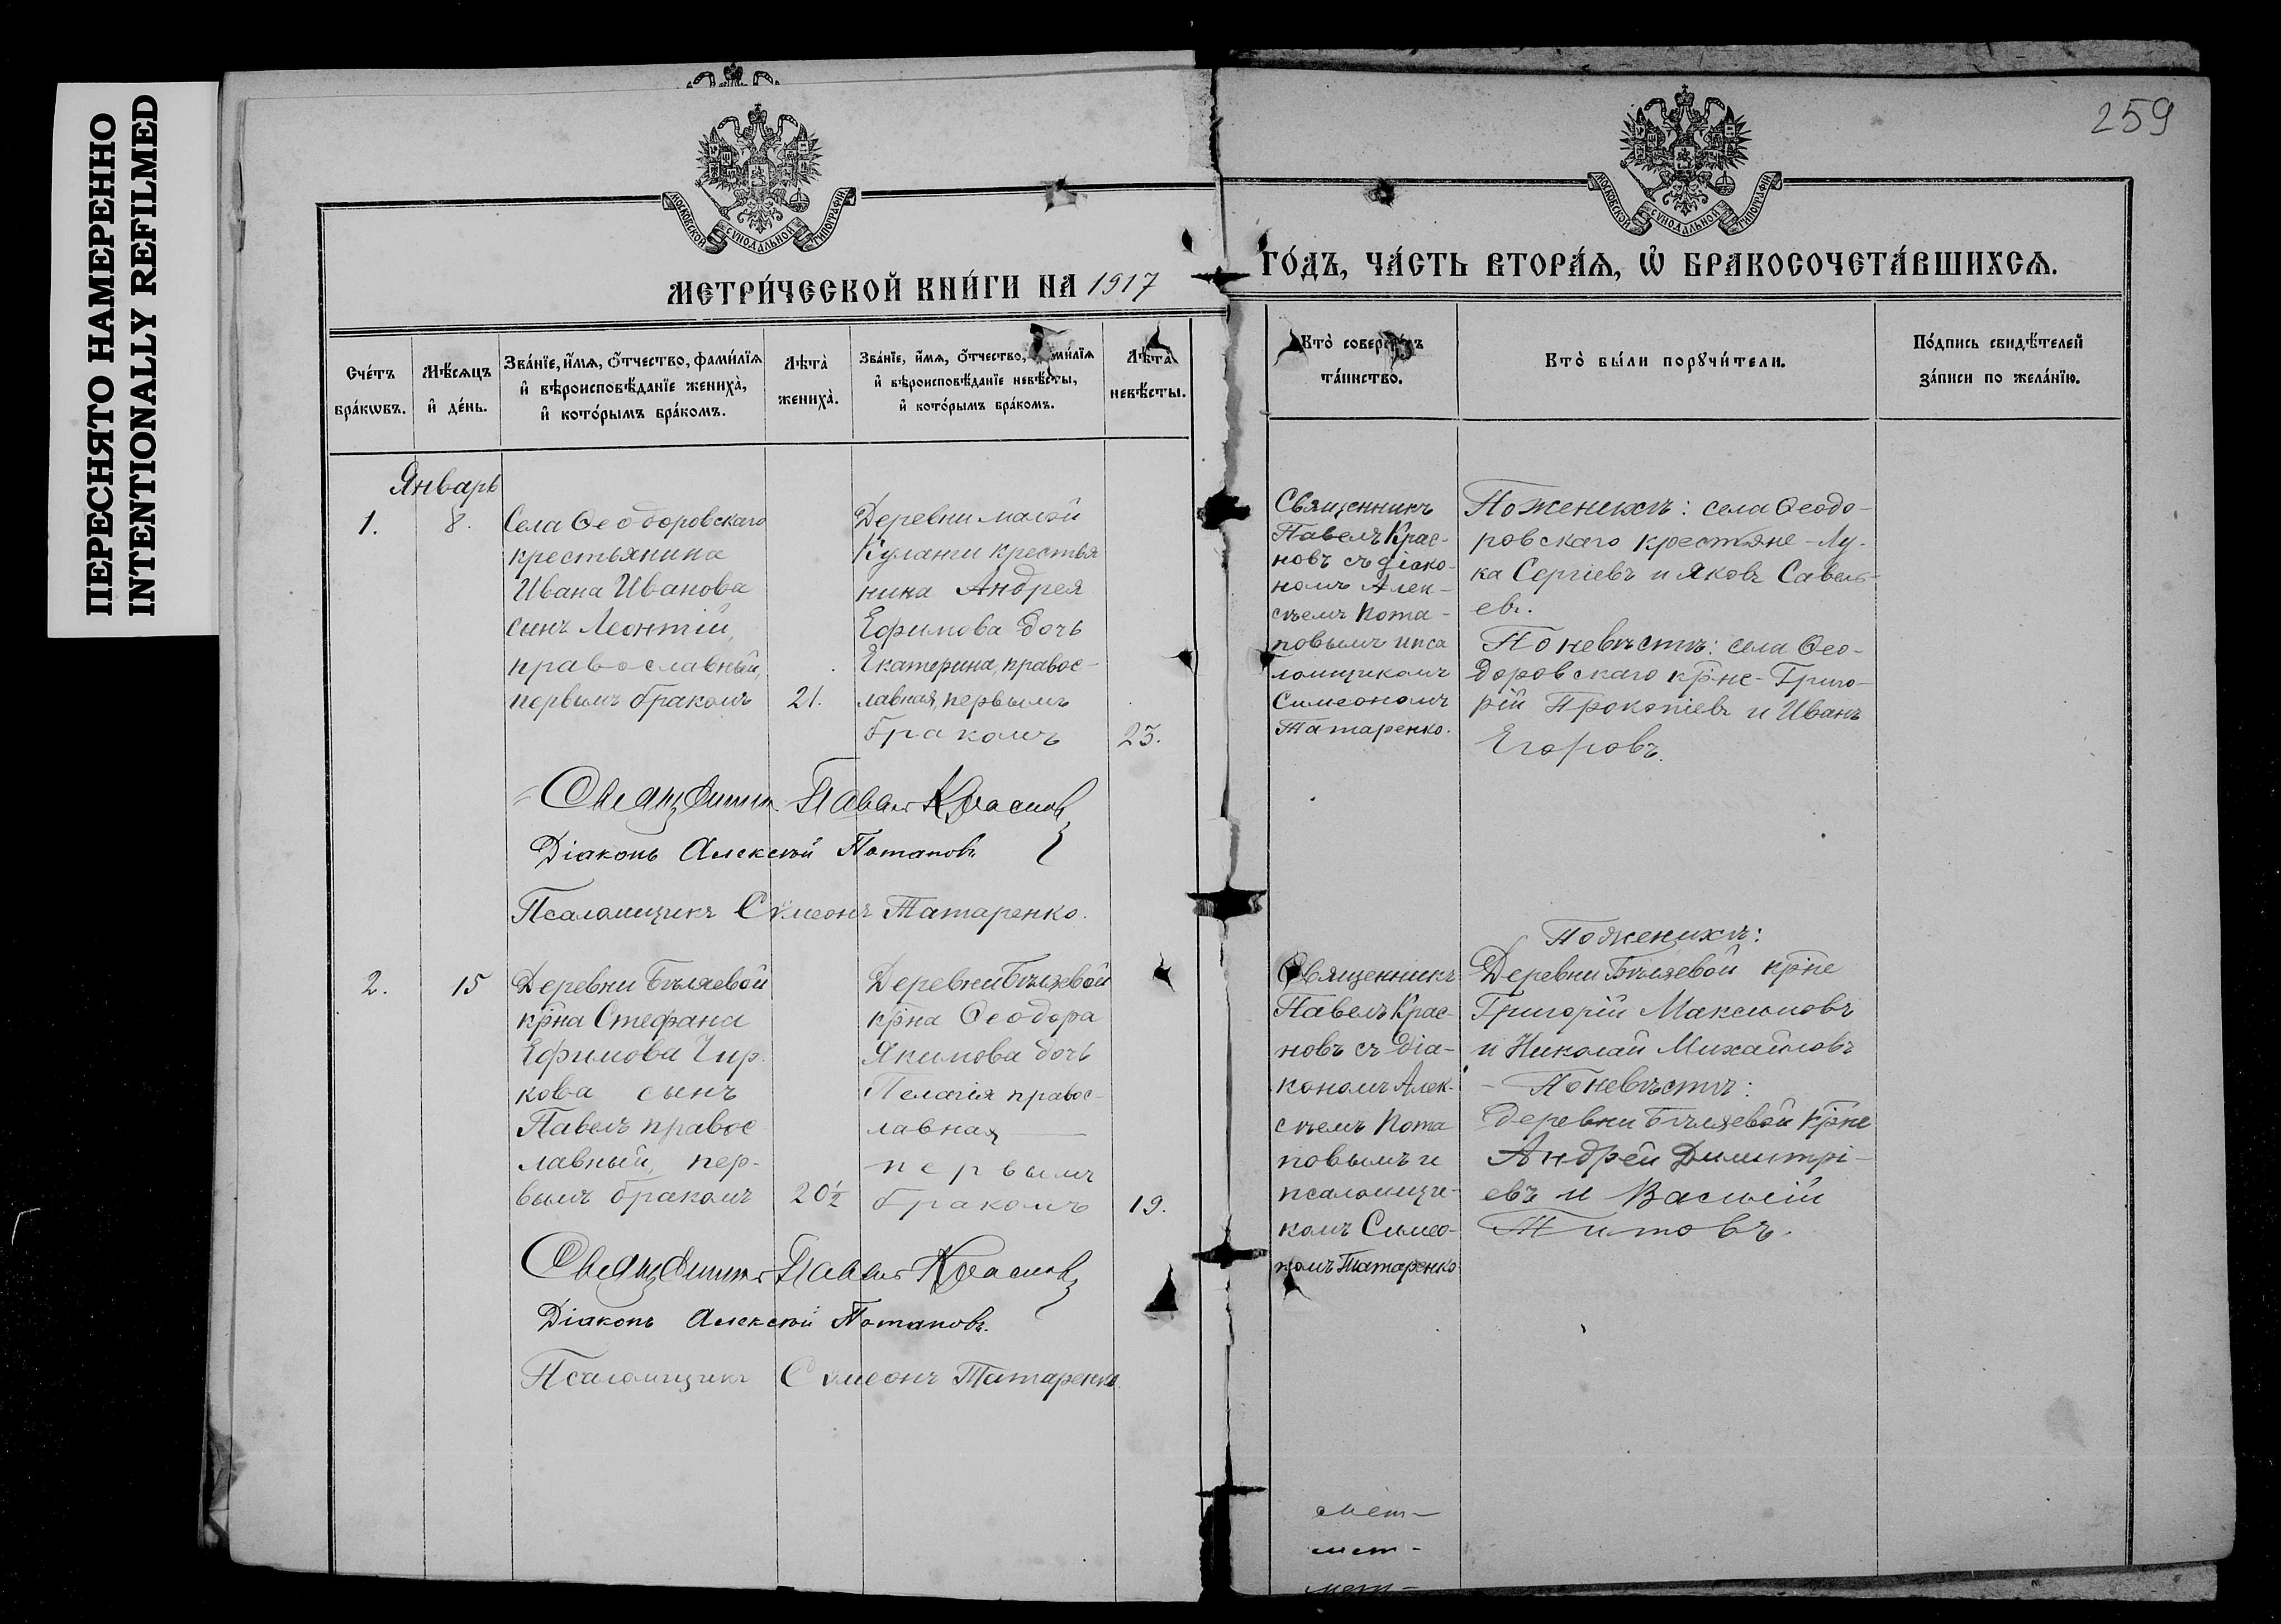 ПЕРЕСНЯТО НАМЕРЕННО
INTENTIONALLY REFILMED
259
МОСКОВСКОЙ СУНОДАЛЬНОЙ ТИПОГРАФІИ
МОСКОВСКОЙ СУНОДАЛЬНОЙ ТИПОГРАФІИ
МЕТРИ́ЧЕСКОЙ КНИ́ГИ НА 1917
ГО́ДЪ, ЧА́СТЬ ВТОРА́Ѧ, Ѽ БРАКОСОЧЕТА́ВШИХСѦ.
Сче́тъ бра́кѡвъ.
Мѣ́сѧцъ и҆ де́нь.
Зва́нїе, и҆́мѧ, ѻ҆́тчество, фами́лїѧ
и҆ вѣроисповѣ́данїе жениха̀,
и҆ кото́рымъ бра́комъ.
Лѣта̀ жениха̀.
Зва́нїе, и҆́мѧ, ѻ҆́тчество, фами́лїѧ
и҆ вѣроисповѣ́данїе невѣ́сты,
и҆ кото́рымъ бра́комъ.
Лѣта̀ невѣ́сты.
Кто̀ соверша́лъ та́инство.
Кто̀ бы́ли порꙋчи́тели.
По́дпись свидѣ́телей за́писи по жела́нїю.
Январь
1.
8.
Села Ѳеодоровскаго
крестьянина
Ивана Иванова
сынъ Леонтій,
православный,
первымъ бракомъ
21.
Деревни малой
Куланги крестья
нина Андрея
Ефимова дочь
Екатерина, правос-
лавная, первымъ
бракомъ
23.
Священникъ
Павелъ Крас-
новъ съ діако-
номъ Алек-
сѣемъ Пота-
повымъ и пса
ломщикомъ
Симеономъ
Татаренко.
По женихѣ: села Ѳеодо-
ровскаго крестяне - Лу-
ка Сергіевъ и Яковъ Савель-
евъ.
По невѣстѣ: села Ѳео-
доровскаго кр̄не - Григо-
рій Прокопіевъ и Иванъ
Егоровъ.
Священникъ Павелъ Красновъ
Діаконъ Алексѣй Потаповъ
Псаломщикъ Сѵмеонъ Татаренко.
2.
15
Деревни Бѣляевой
кр̄на Стефана
Ефимова Чир
кова сынъ
Павелъ правос
лавный, пер-
вымъ бракомъ
20½
Деревни Бѣляевой
кр̄на Ѳеодора
Якимова дочь
Пелагія правос-
лавная
первымъ
бракомъ
19.
Священникъ
Павелъ Крас-
новъ съ діа-
кономъ Алек-
сѣемъ Пота
повымъ и
псаломщи-
комъ Симео-
номъ Татаренко
По женихѣ:
Деревни Бѣляевой кр̄не
Григорій Максимовъ
и Николай Михайловъ
- По невѣстѣ:
деревни Бѣляевой кр̄не
Андрей Димитрі-
евъ и Василій
Титовъ.
Священникъ Павелъ Красновъ
Діаконъ Алексѣй Потаповъ.
Псаломщикъ Сѵмеонъ Татаренко.